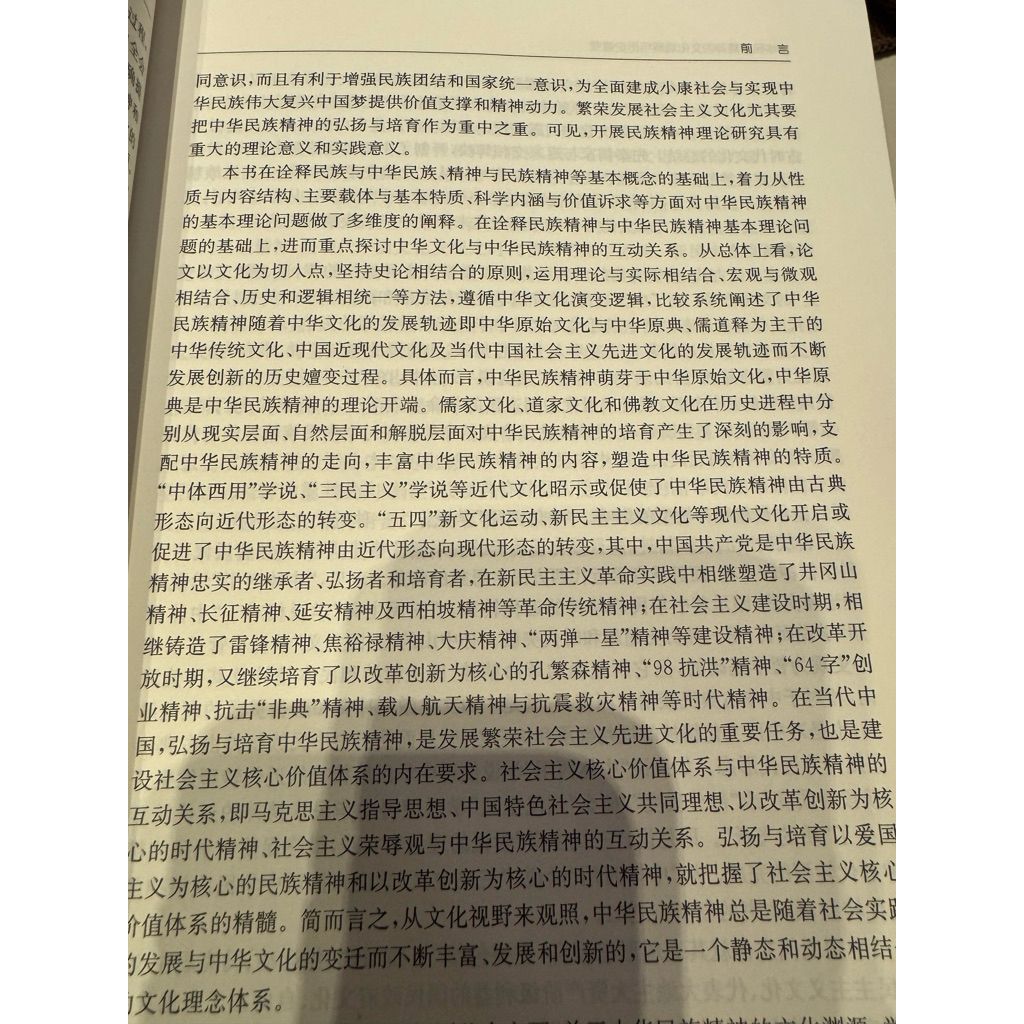 前　言
同意识,而且有利于增强民族团结和国家统一意识,为全面建成小康社会与实现中
华民族伟大复兴中国梦提供价值支撑和精神动力。繁荣发展社会主义文化尤其要
把中华民族精神的弘扬与培育作为重中之重。可见,开展民族精神理论研究具有
重大的理论意义和实践意义。
本书在诠释民族与中华民族、精神与民族精神等基本概念的基础上,着力从性
质与内容结构、主要载体与基本特质、科学内涵与价值诉求等方面对中华民族精神
的基本理论问题做了多维度的阐释。在诠释民族精神与中华民族精神基本理论问
题的基础上,进而重点探讨中华文化与中华民族精神的互动关系。从总体上看,论
文以文化为切入点,坚持史论相结合的原则,运用理论与实际相结合、宏观与微观
相结合、历史和逻辑相统一等方法,遵循中华文化演变逻辑,比较系统阐述了中华
民族精神随着中华文化的发展轨迹即中华原始文化与中华原典、儒道释为主干的
中华传统文化、中国近现代文化及当代中国社会主义先进文化的发展轨迹而不断
发展创新的历史嬗变过程。具体而言,中华民族精神萌芽于中华原始文化,中华原
典是中华民族精神的理论开端。儒家文化、道家文化和佛教文化在历史进程中分
别从现实层面、自然层面和解脱层面对中华民族精神的培育产生了深刻的影响,支
配中华民族精神的走向,丰富中华民族精神的内容,塑造中华民族精神的特质。
“中体西用”学说、“三民主义”学说等近代文化昭示或促使了中华民族精神由古典
形态向近代形态的转变。“五四”新文化运动、新民主主义文化等现代文化开启或
促进了中华民族精神由近代形态向现代形态的转变,其中,中国共产党是中华民族
精神忠实的继承者、弘扬者和培育者,在新民主主义革命实践中相继塑造了井冈山
精神、长征精神、延安精神及西柏坡精神等革命传统精神;在社会主义建设时期,相
继铸造了雷锋精神、焦裕禄精神、大庆精神、“两弹一星”精神等建设精神;在改革开
放时期,又继续培育了以改革创新为核心的孔繁森精神、“98 抗洪”精神、“64 字”创
业精神、抗击“非典”精神、载人航天精神与抗震救灾精神等时代精神。在当代中
国,弘扬与培育中华民族精神,是发展繁荣社会主义先进文化的重要任务,也是建
设社会主义核心价值体系的内在要求。社会主义核心价值体系与中华民族精神的
互动关系,即马克思主义指导思想、中国特色社会主义共同理想、以改革创新为核
心的时代精神、社会主义荣辱观与中华民族精神的互动关系。弘扬与培育以爱国
主义为核心的民族精神和以改革创新为核心的时代精神,就把握了社会主义核心
价值体系的精髓。简而言之,从文化视野来观照,中华民族精神总是随着社会实践
的发展与中华文化的变迁而不断丰富、发展和创新的,它是一个静态和动态相结
文化理念体系。